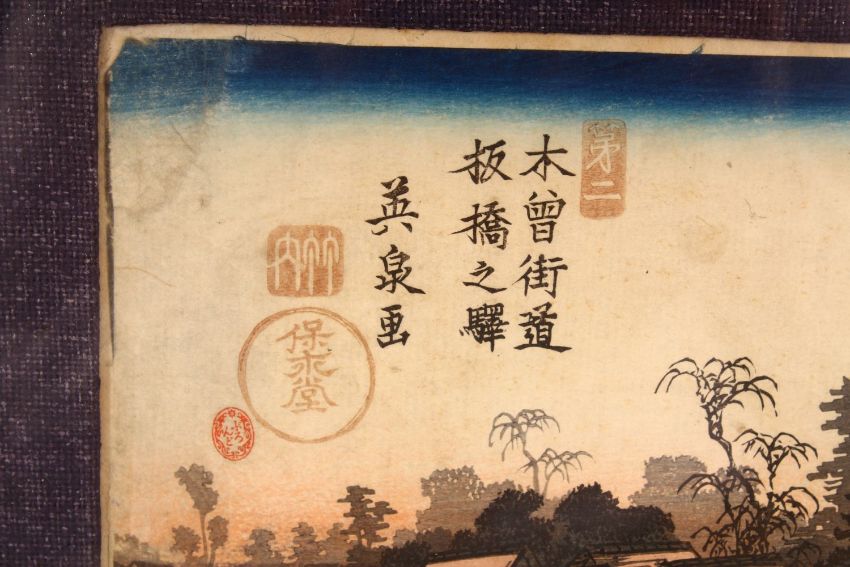 第二
木曾街道
板橋之驛
英泉画
竹内
保永堂